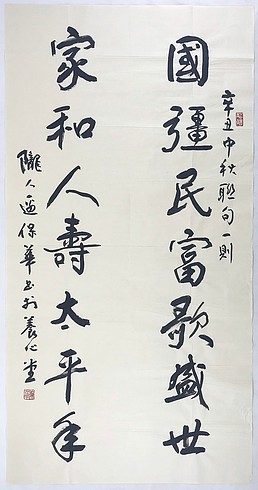 辛丑中秋聯句一則
國彊民富歌盛世
家和人壽太平年
隴人保華書於養心堂